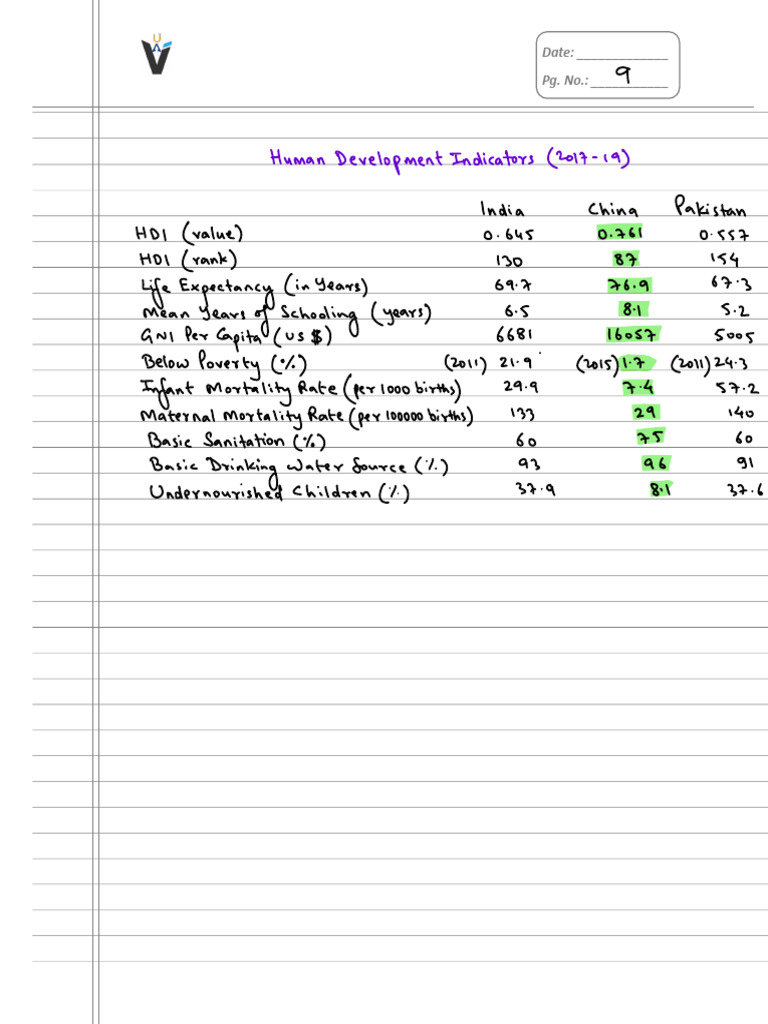 Date: ____________
Pg. No.: 9
Human Development Indicators (2017-19)
India China Pakistan
HDI (value) 0.645 0.761 0.557
HDI (rank) 130 87 154
Life Expectancy (in Years) 69.7 76.9 67.3
Mean Years of Schooling (years) 6.5 8.1 5.2
GNI Per Capita (US $) 6681 16057 5005
Below Poverty (%) (2011) 21.9 (2015) 1.7 (2011) 24.3
Infant Mortality Rate (per 1000 births) 29.9 7.4 57.2
Maternal Mortality Rate (per 100000 births) 133 29 140
Basic Sanitation (%) 60 75 60
Basic Drinking Water Source (%) 93 96 91
Undernourished Children (%) 37.9 8.1 37.6